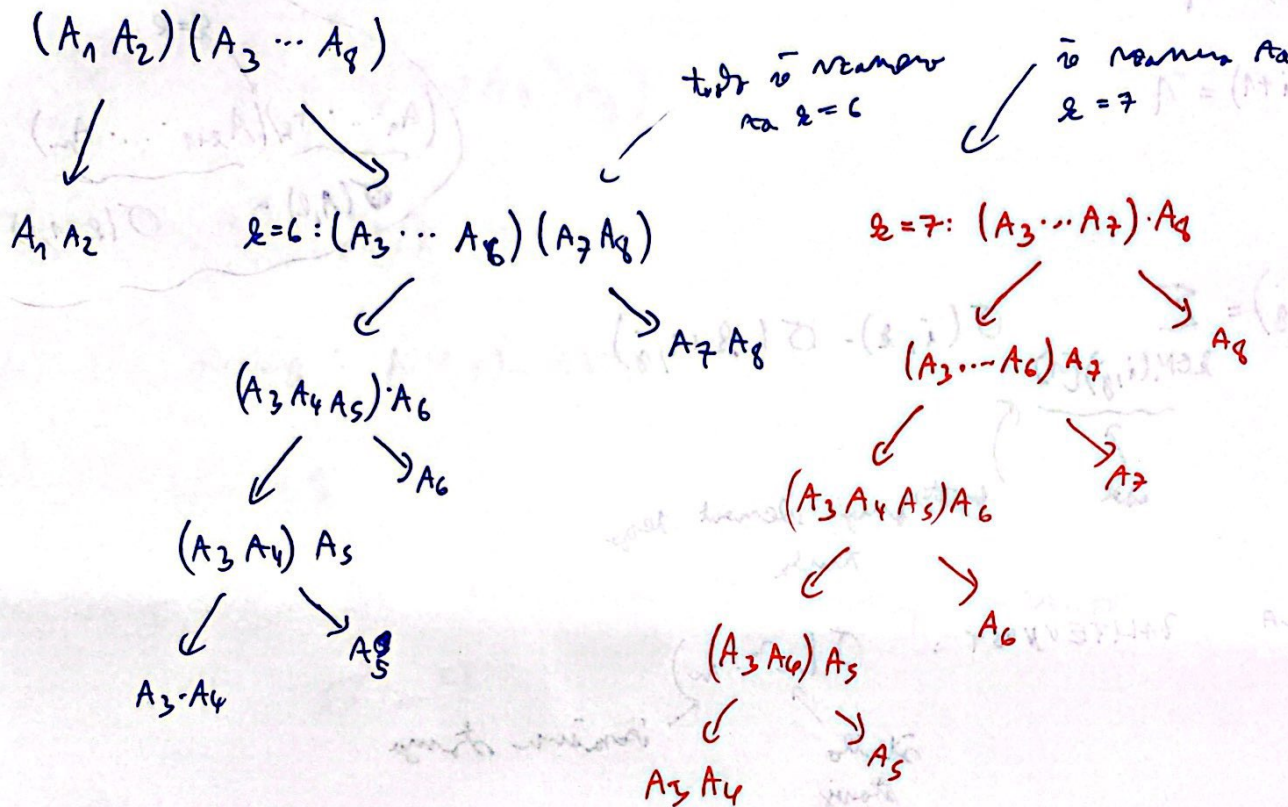 (A₁ A₂)(A₃ ⋯ A₈)
za k=6
k=7
A₁·A₂
k=6: (A₃ ⋯ A₆)(A₇ A₈)
k=7: (A₃ ⋯ A₇)·A₈
A₇ A₈
(A₃ ⋯ A₆) A₇
A₈
(A₃ A₄ A₅)·A₆
A₆
(A₃ A₄ A₅) A₆
A₇
(A₃ A₄) A₅
A₅
A₃·A₄
(A₃ A₄) A₅
A₆
A₃ A₄
A₅